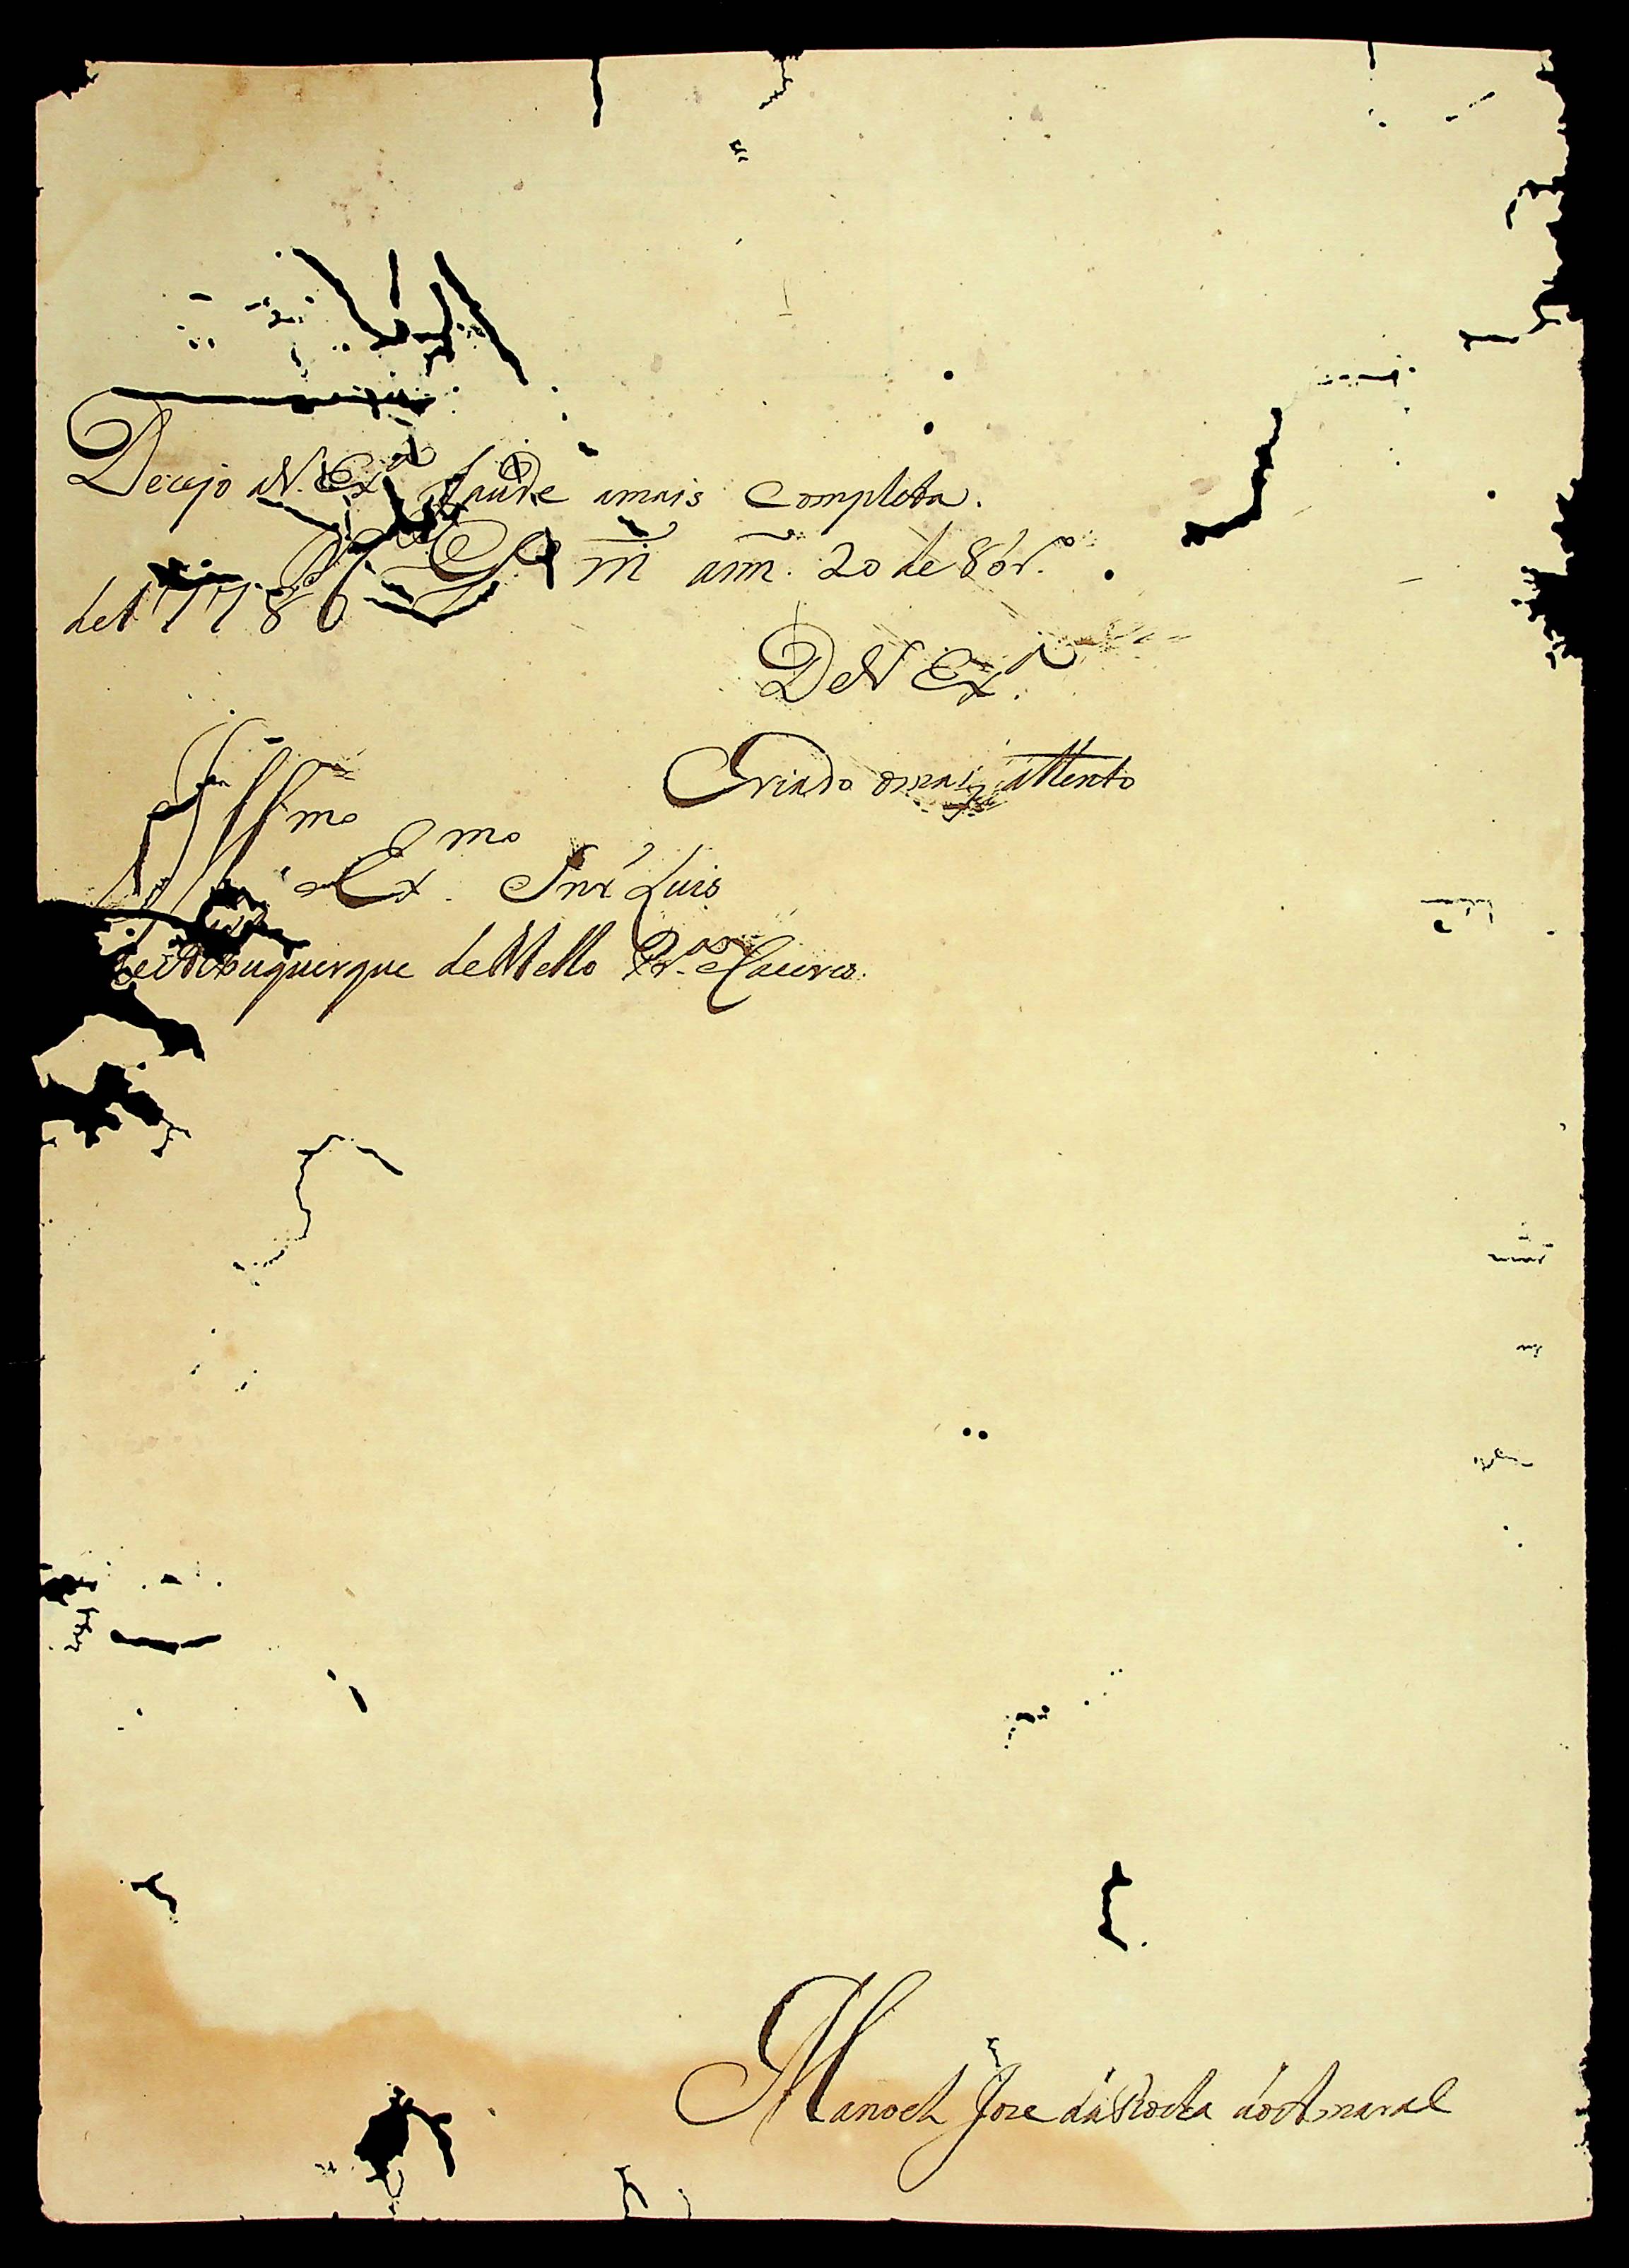 Decejo a V. Exª Saude amais Completa.
D.s G.e m̃ ann̄. 20 de 8br.º
de 1778
De V Exª.
Criado o mais attento
Illmo
Ex.mo Snr̃ Luis
de Albuquerque de Mello Pr.ª e Caceres.
Manoel Joze da Rocha do Amaral